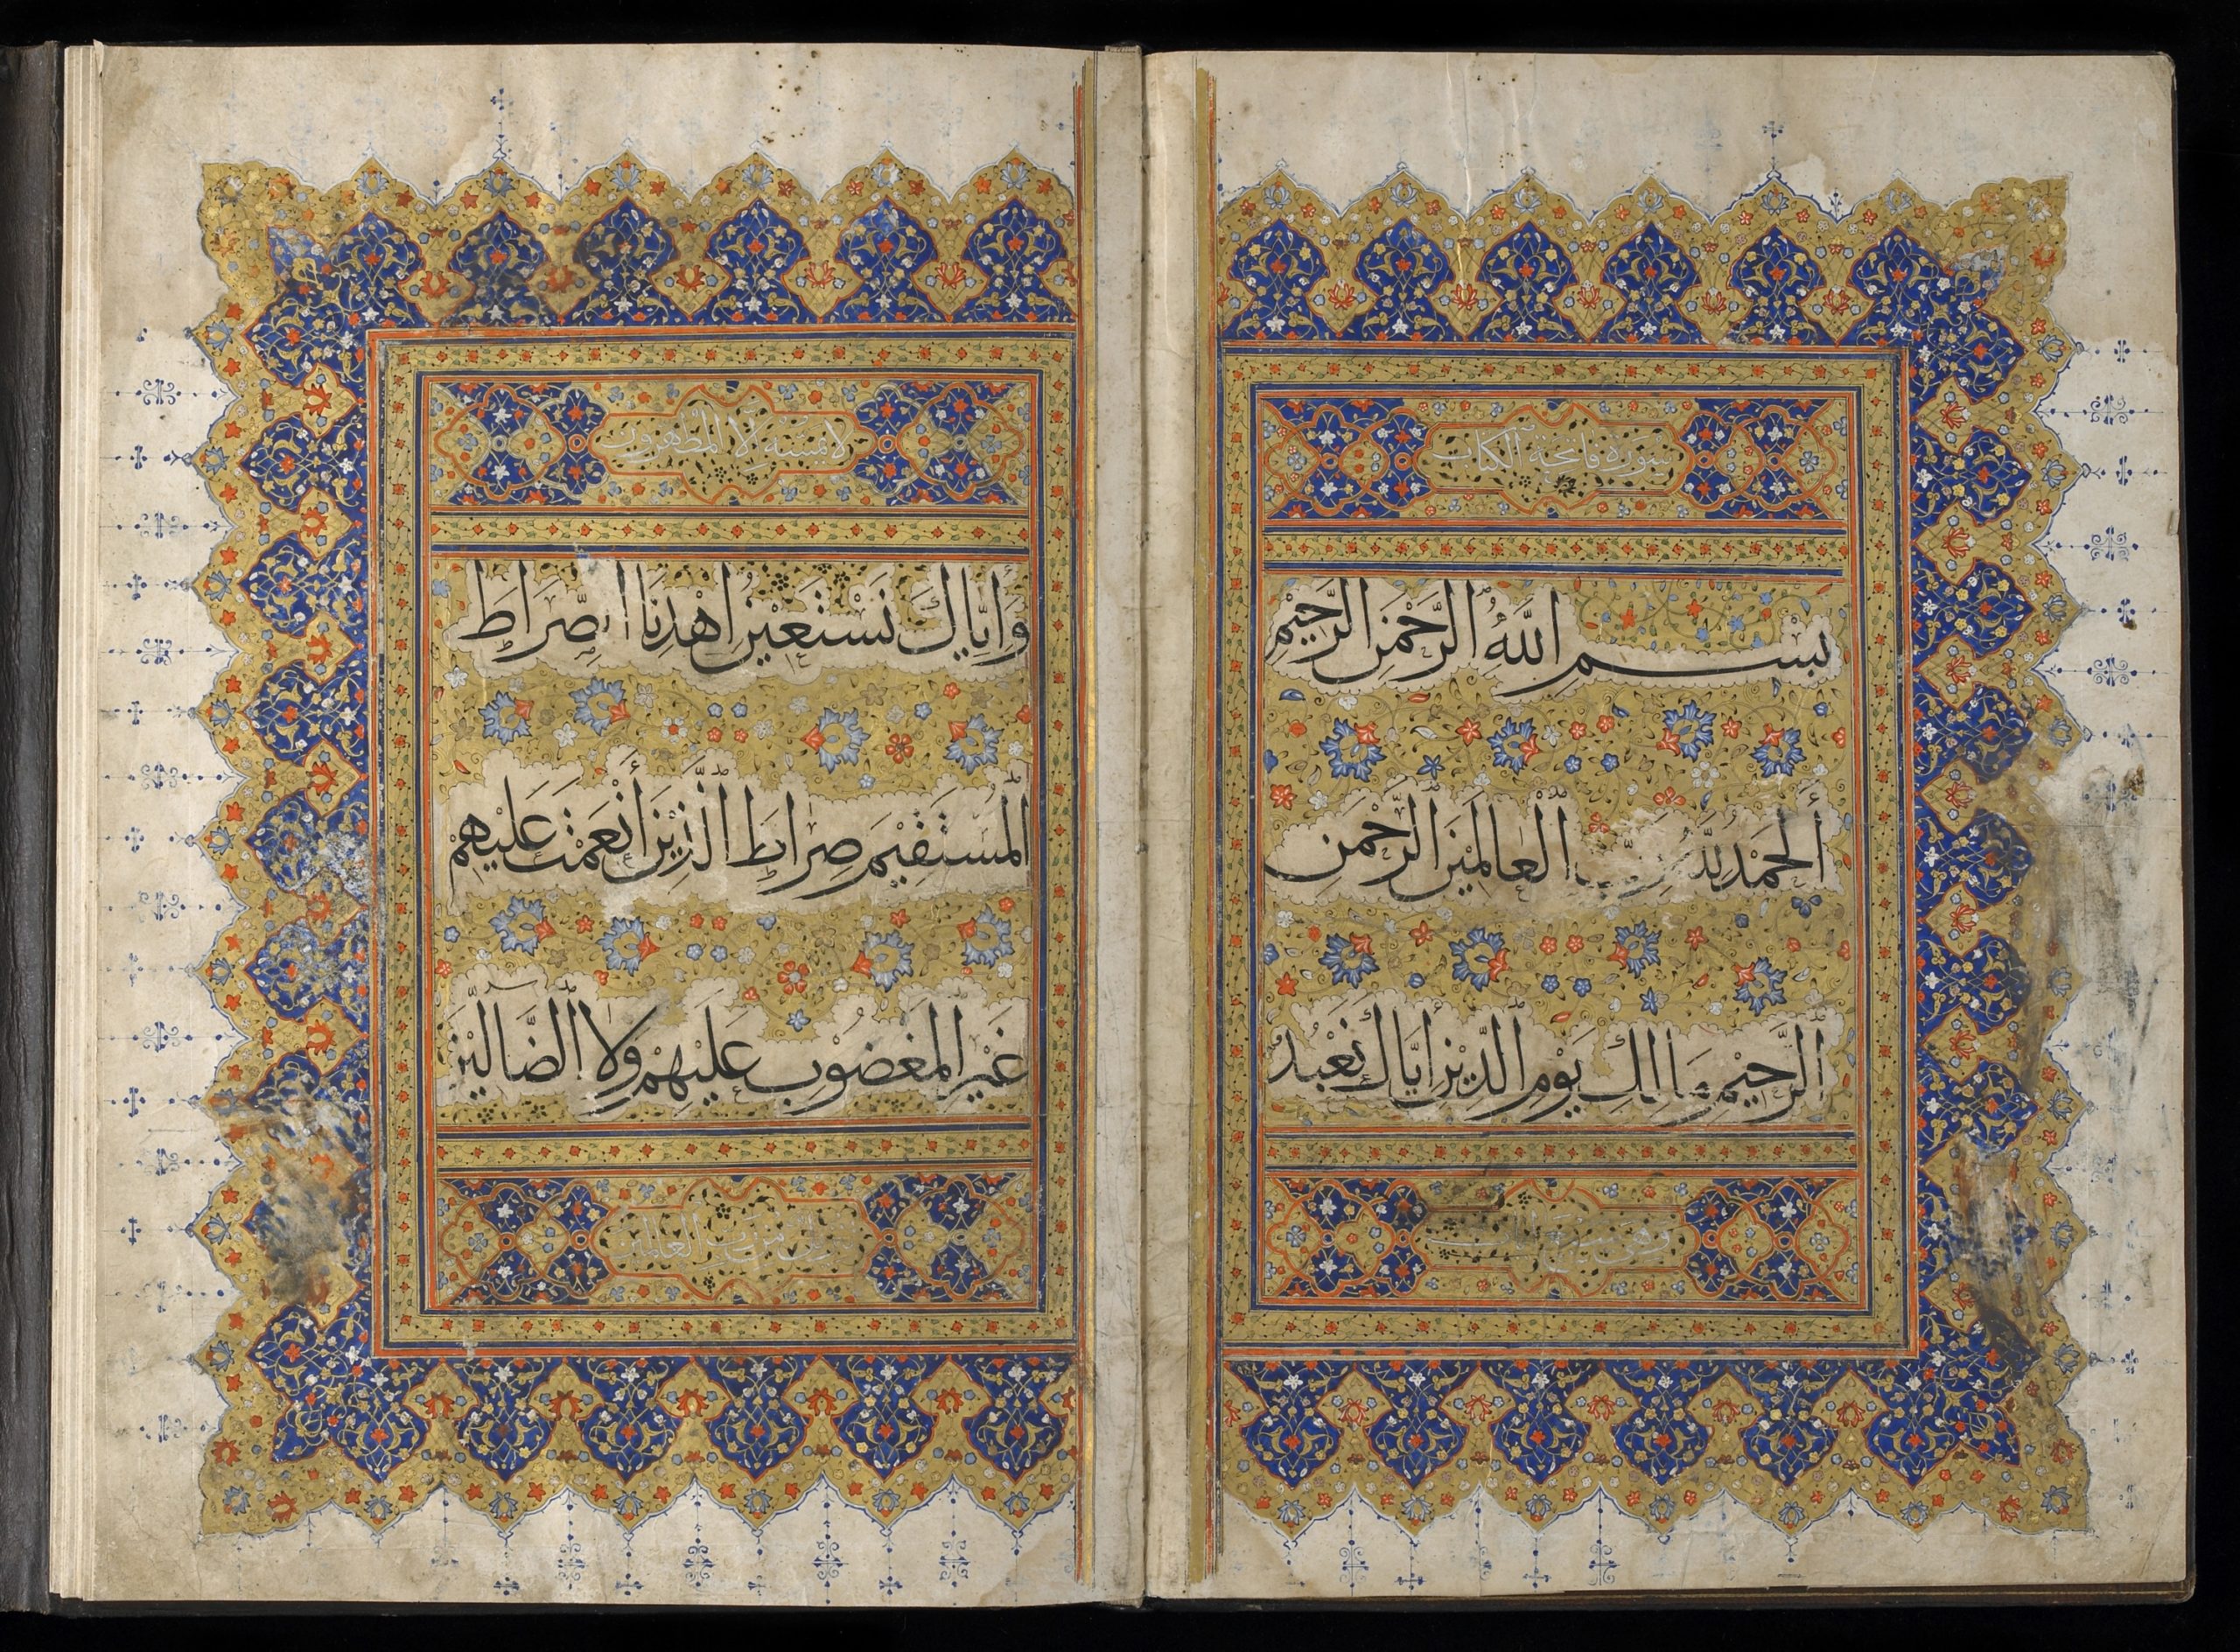 سورة فاتحة الكتاب
بِسْمِ اللَّهِ الرَّحْمَنِ الرَّحِيْمِ
أَلْحَمْدُ لِلَّهِ رَبِّ الْعَالَمِيْنَ الرَّحْمَنِ
الرَّحِيْمِ مَالِكِ يَوْمِ الدِّيْنِ اِيَّاكَ نَعْبُدُ
وهي سبع
لا يمسه إلا المطهرون
وَاِيَّاكَ نَسْتَعِيْنُ اِهْدِنَا الصِّرَاطَ
الْمُسْتَقِيْمَ صِرَاطَ الَّذِيْنَ أَنْعَمْتَ عَلَيْهِمْ
غَيْرِ الْمَغْضُوْبِ عَلَيْهِمْ وَلَا الضَّآلِّيْنَ
من رب العالمين